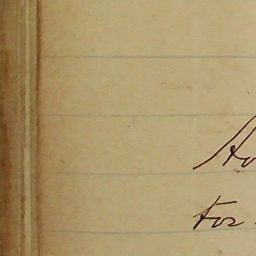 Ho
for